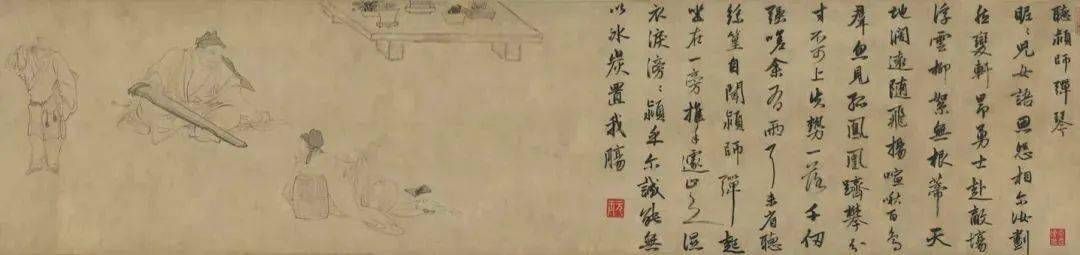 聽頴師彈琴
昵〻兒女語恩怨相爾汝劃
然變軒昂勇士赴敵場
浮雲柳絮無根蒂天
地闊遠隨飛揚喧啾百鳥
羣忽見孤鳳凰躋攀分
寸不可上失勢一落千
強嗟余有兩耳未省聽
絲自聞頴師彈起
坐在一旁推手遽止之濕
衣淚滂〻頴乎爾誠能無
以冰炭置我腸